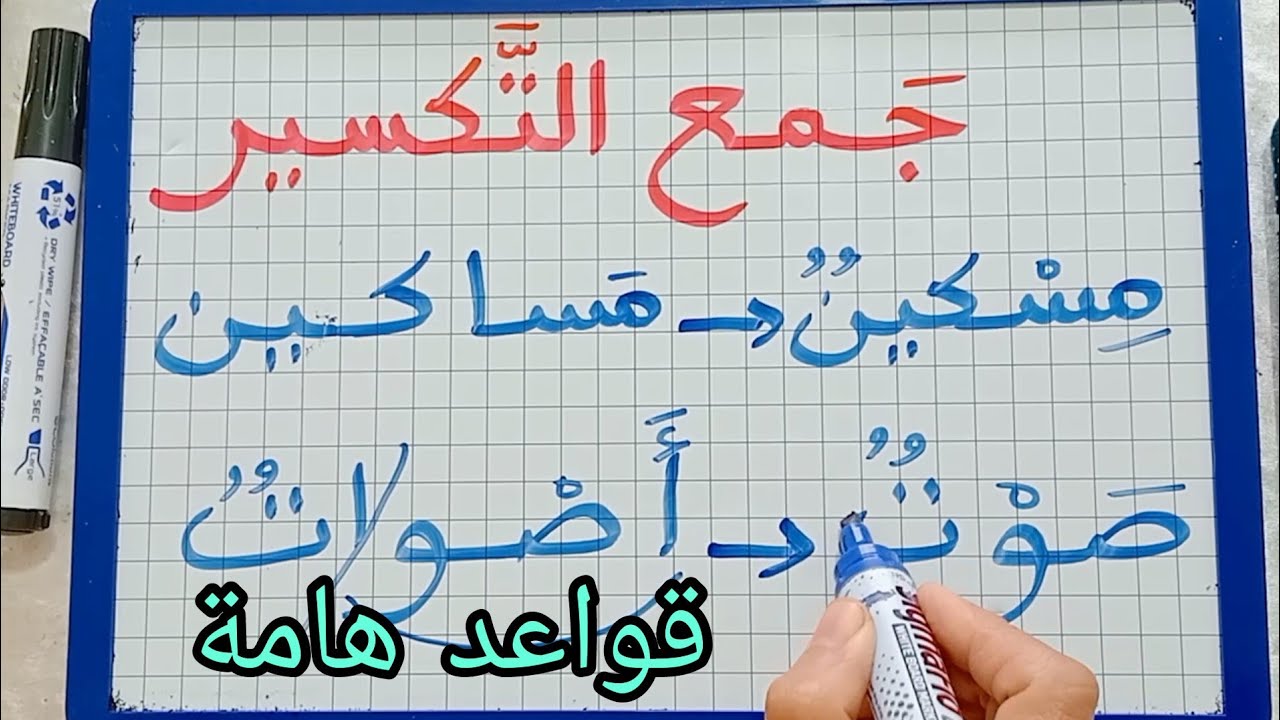 جَمع التَّكسير
مِسْكينٌ → مَساكين
صَوْتٌ → أَصْواتٌ
قواعد هامة
WHITEBOARD
DRY WIPE / EFFAÇABLE A'SEC
Large